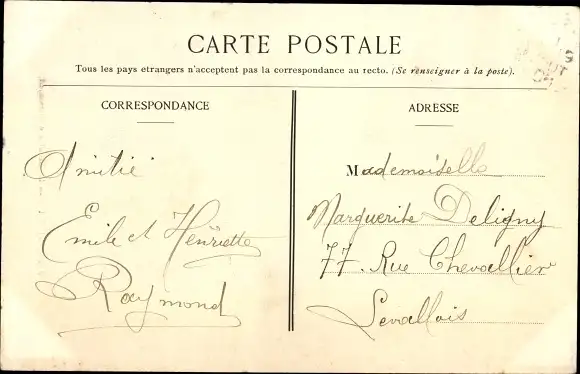 CARTE POSTALE
Tous les pays etrangers n'acceptent pas la correspondance au recto. (Se renseigner à la poste).
CORRESPONDANCE
ADRESSE
Amitié
Emile et Henriette
Raymond
Mademoiselle
Marguerite Deligny
77. Rue Chevallier
Levallois